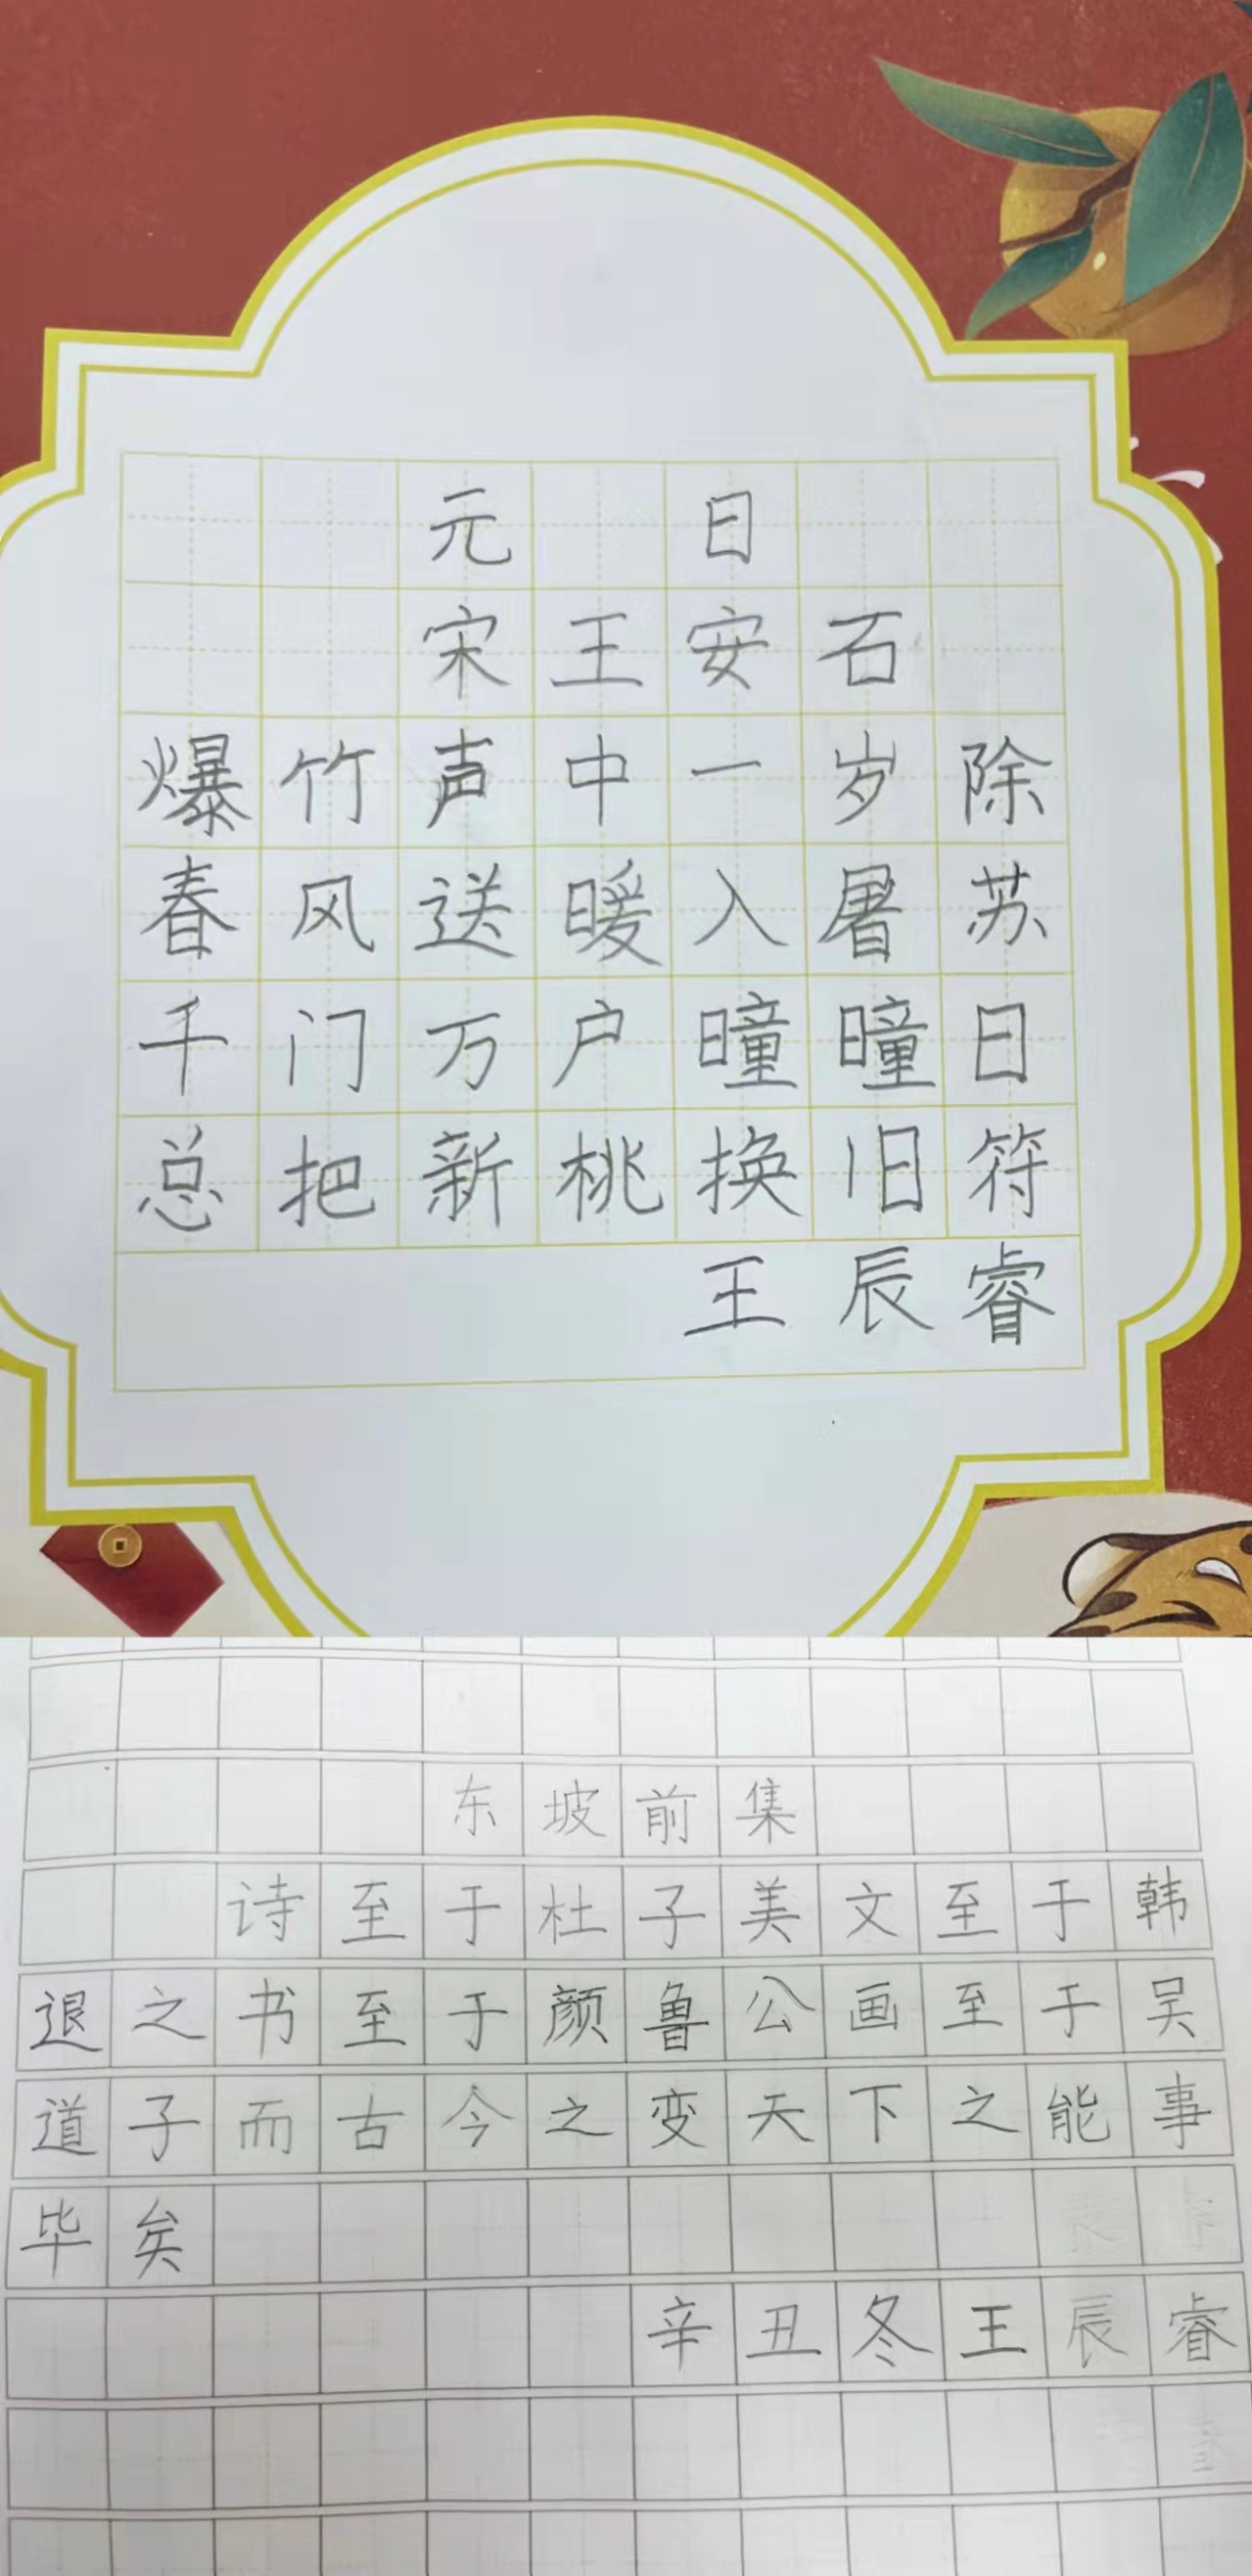 元日
宋王安石
爆竹声中一岁除
春风送暖入屠苏
千门万户曈曈日
总把新桃换旧符
王辰睿
东坡前集
诗至于杜子美文至于韩
退之书至于颜鲁公画至于吴
道子而古今之变天下之能事
毕矣
辛丑冬王辰睿